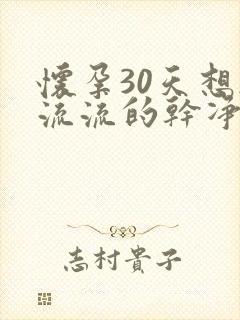 懷孕30天想
流流的幹凈
志村貴子